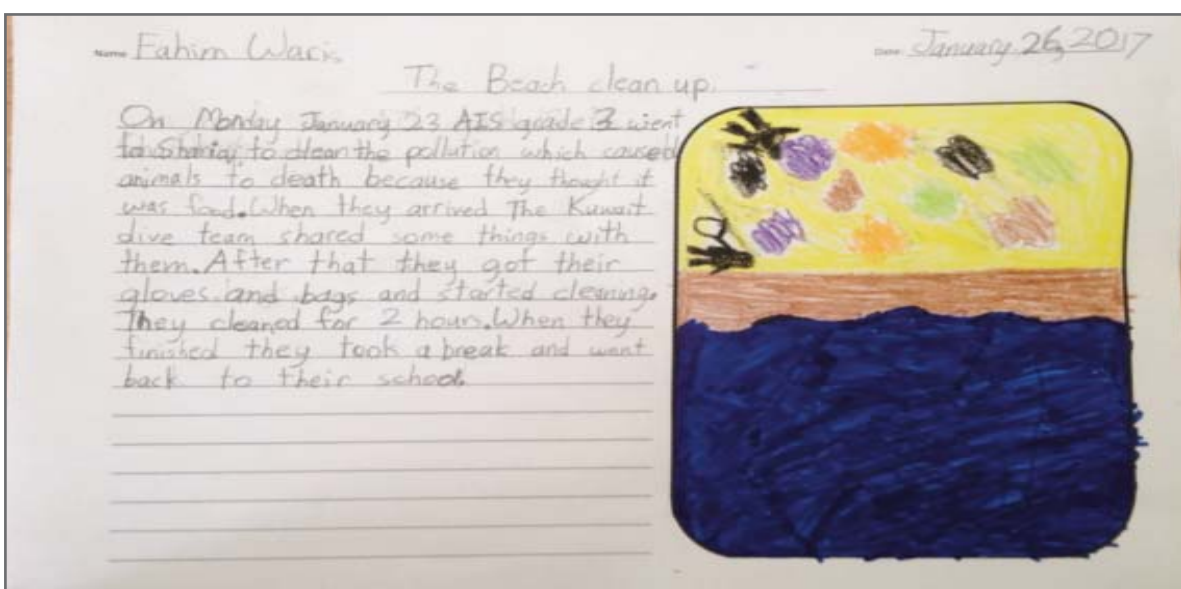 Name Fahim Waris
Date January 26, 2017
The Beach clean up.
On Monday January 23 AIS grade 3 went
to to clean the pollution which caused
animals to death because they thought it
was food. When they arrived The Kuwait
dive team shared some things with
them. After that they got their
gloves and bags and started cleaning.
They cleaned for 2 hours. When they
finished they took a break and went
back to their school.